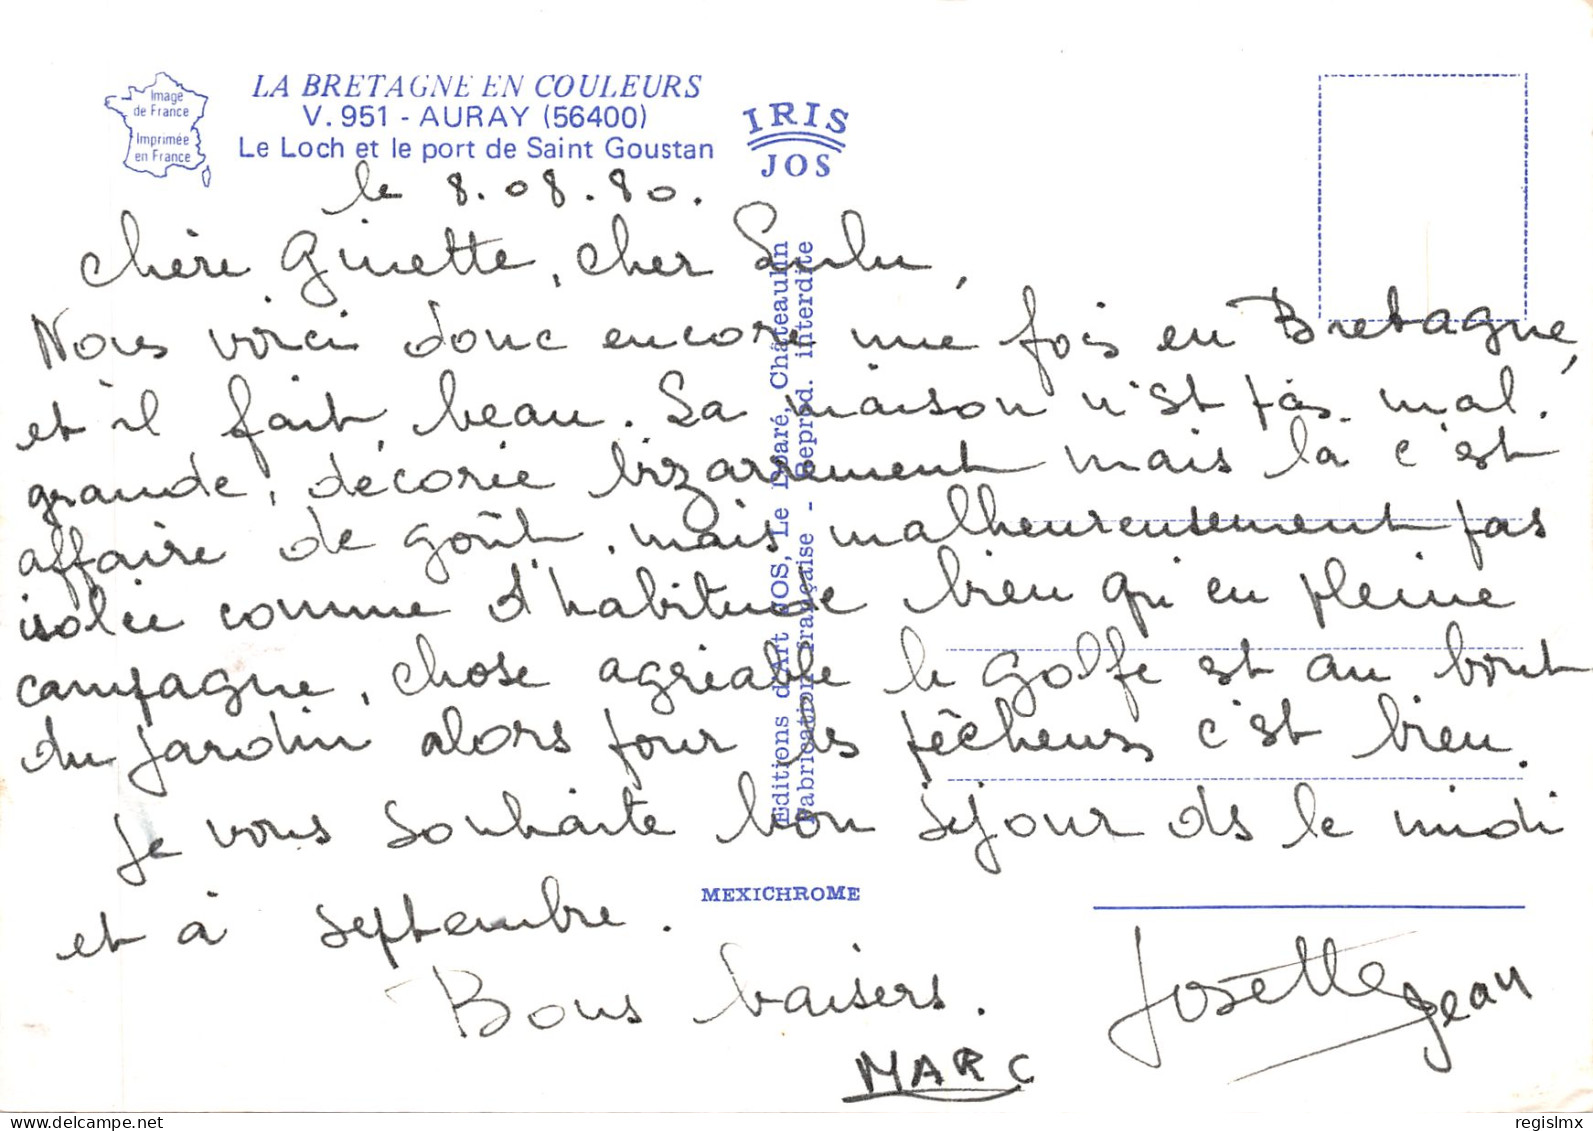 Image
de France
Imprimée
en France
LA BRETAGNE EN COULEURS
V. 951 - AURAY (56400)
Le Loch et le port de Saint Goustan
IRIS
JOS
le 8.08.80.
Chère Ginette, cher Lulu,
Nous voici donc encore une fois en Bretagne,
et il fait beau. La maison n'est pas mal.
grande, décorée bizarrement mais là c'est
affaire de goût, mais malheureusement pas
isolée comme d'habitude bien qu'en pleine
campagne, chose agréable le golfe est au bout
du jardin alors pour les pêcheurs c'est bien.
Je vous souhaite bon séjour ds le midi
et à septembre.
Bons baisers.
Josette
Jean
MARC
Editions d'Art JOS, Le Doaré, Châteaulin
Fabrication française - Reprod. interdite
MEXICHROME
delcampe.net
regislmx